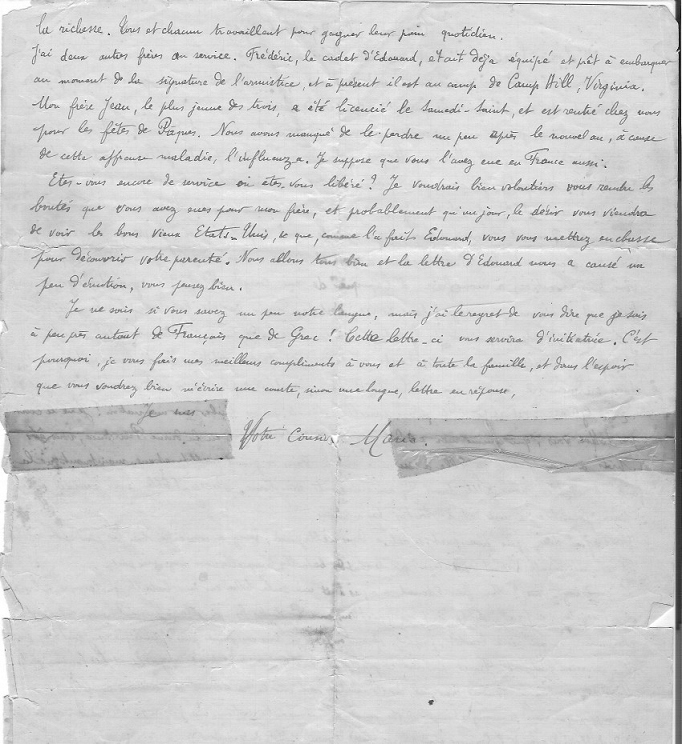 la richesse. Tous et chacun travaillent pour gagner leur pain quotidien.
J'ai deux autres frères au service. Frédéric, le cadet d'Edouard, était déja équipé et prêt à embarquer
au moment de la signature de l'armistice, et à présent il est au camp de Camp Hill, Virginia.
Mon frère Jean, le plus jeune des trois, a été licencié le Samedi-Saint, et est rentré chez nous
pour les fêtes de Pâques. Nous avons manqué de le perdre un peu après le nouvel an, à cause
de cette affreuse maladie, l'influenza. Je suppose que vous l'avez eue en France aussi.
Etes-vous encore de service ou êtes-vous libéré? Je voudrais bien volontiers vous rendre les
bontés que vous avez eues pour mon frère, et probablement qu'un jour, le désir vous viendra
de voir les bons vieux Etats-Unis, et que, comme l'a fait Edouard, vous vous mettrez en chasse
pour découvrir votre parenté. Nous allons tous bien et la lettre d'Edouard nous a causé un
peu d'émotion, vous pensez bien.
Je ne sais si vous savez un peu notre langue, mais j'ai le regret de vous dire que je sais
à peu près autant de Français que de Grec! Cette lettre-ci vous servira d'initiative. C'est
pourquoi, je vous fais mes meilleurs compliments à vous et à toute la famille, et dans l'espoir
que vous voudrez bien m'écrire une courte, sinon une longue, lettre en réponse,
Votre Cousine Marie.